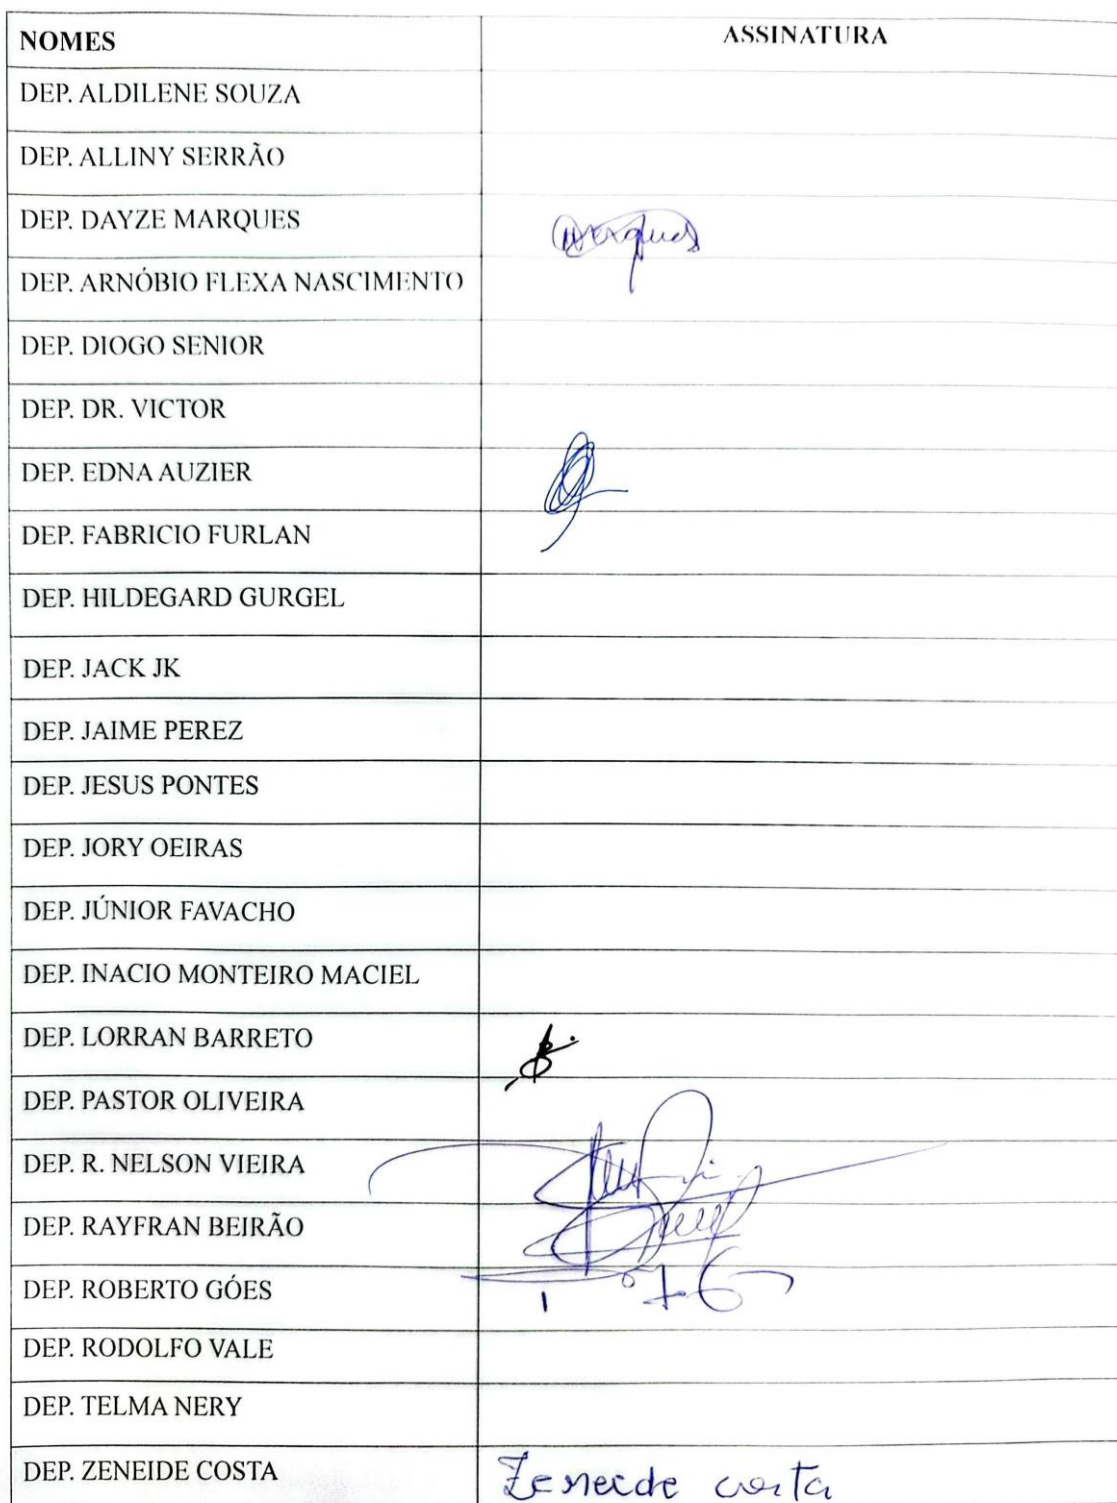 NOMES ASSINATURA
DEP. ALDILENE SOUZA
DEP. ALLINY SERRÃO
DEP. DAYZE MARQUES
DEP. ARNÓBIO FLEXA NASCIMENTO
DEP. DIOGO SENIOR
DEP. DR. VICTOR
DEP. EDNA AUZIER
DEP. FABRICIO FURLAN
DEP. HILDEGARD GURGEL
DEP. JACK JK
DEP. JAIME PEREZ
DEP. JESUS PONTES
DEP. JORY OEIRAS
DEP. JÚNIOR FAVACHO
DEP. INACIO MONTEIRO MACIEL
DEP. LORRAN BARRETO
DEP. PASTOR OLIVEIRA
DEP. R. NELSON VIEIRA
DEP. RAYFRAN BEIRÃO
DEP. ROBERTO GÓES
DEP. RODOLFO VALE
DEP. TELMA NERY
DEP. ZENEIDE COSTA Zeneide costa